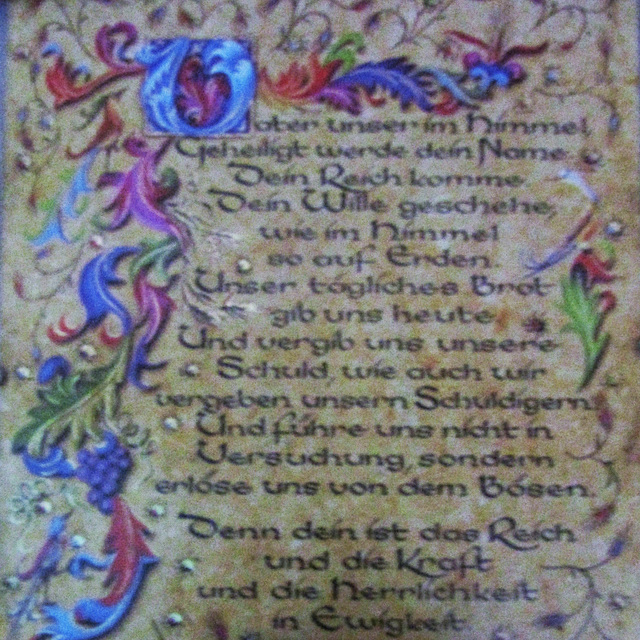 Vater unser im Himmel
Geheiligt werde dein Name
Dein Reich komme
Dein Wille geschehe,
wie im Himmel
so auf Erden.
Unser tägliches Brot
gib uns heute
Und vergib uns unsere
Schuld, wie auch wir
vergeben unsern Schuldigern.
Und führe uns nicht in
Versuchung, sondern
erlöse uns von dem Bösen.
Denn dein ist das Reich
und die Kraft
und die Herrlichkeit
in Ewigkeit